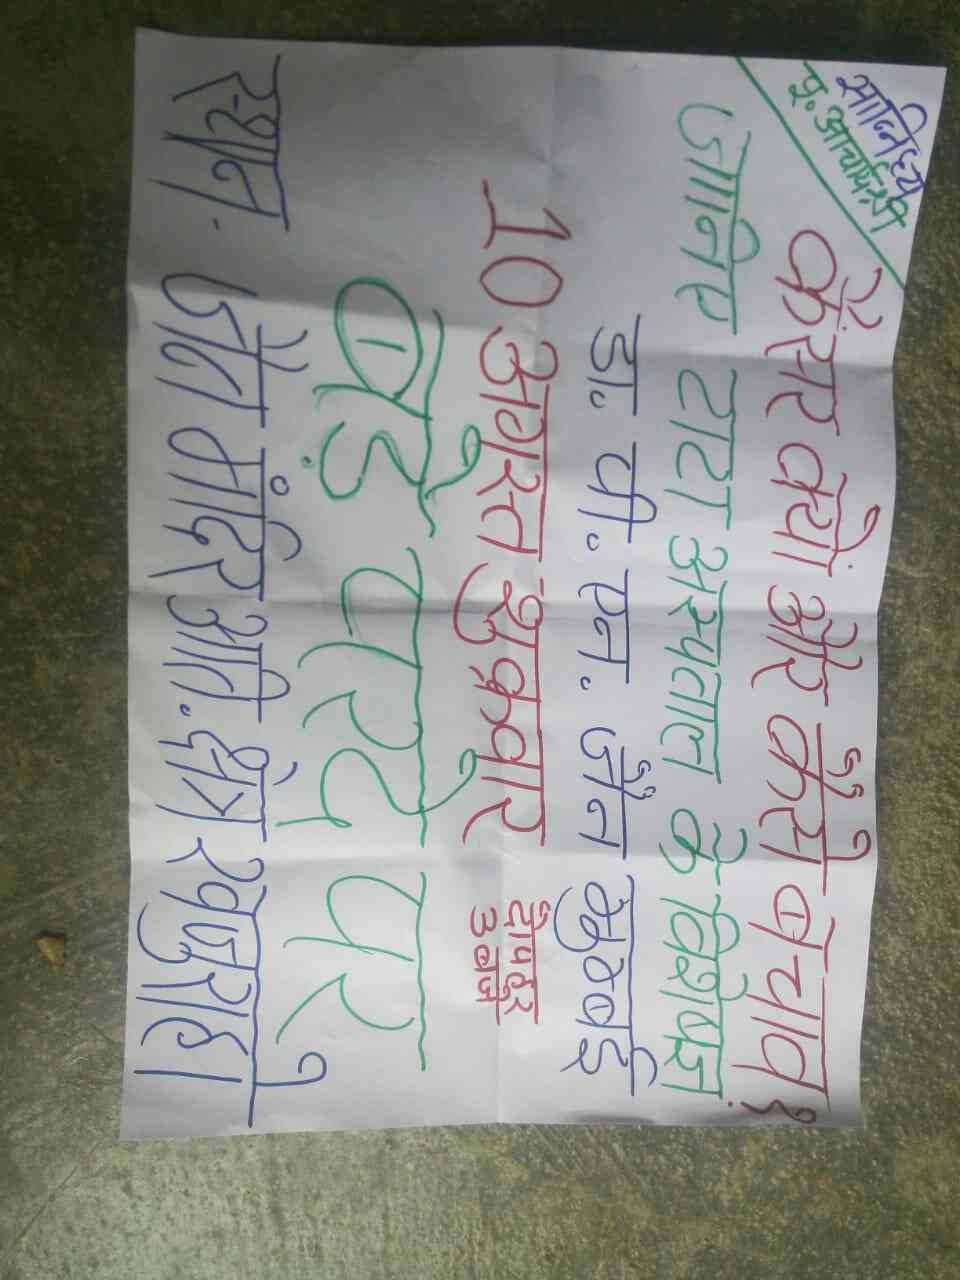 सानिध्य
पू. आचार्य श्री
कैंसर क्यों और कैसे बचाव
जानिए टाटा अस्पताल के विशेषज्ञ
डा. पी. एन. जैन मुम्बई
10 अगस्त शुक्रवार
दोपहर
3 बजे
बड़े परदे पर
स्थान. जैन मंदिर आति. क्षेत्र खजुराहो